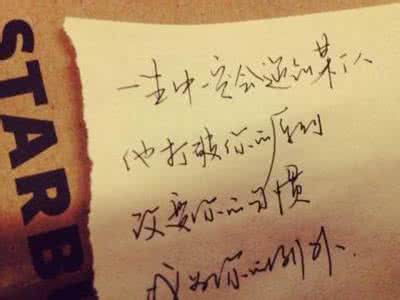 STARB
一生中一定会遇到某个人
他打破你的原则
改变你的习惯
成为你的例外.